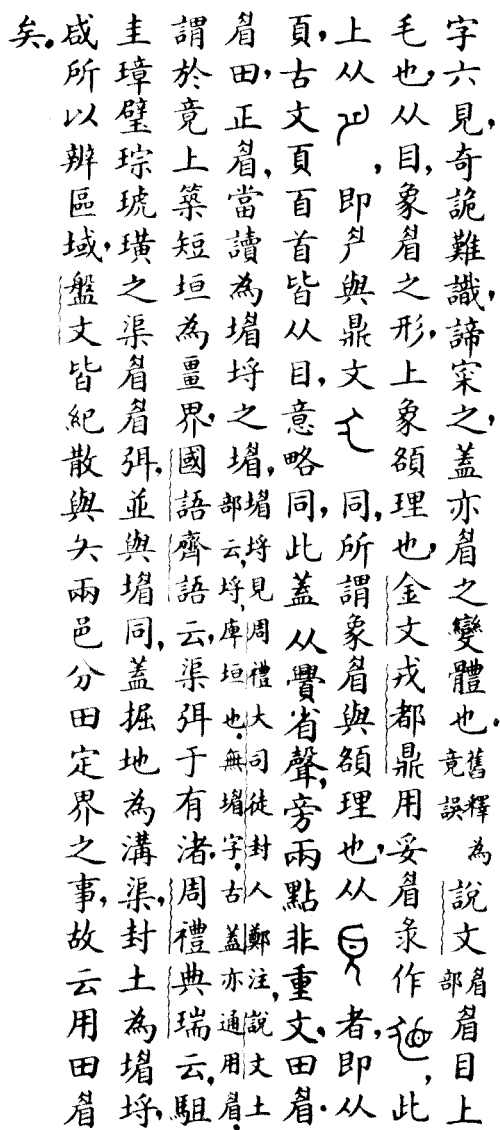 字六見，奇詭難識，諦寀之，蓋亦眉之變體也。舊釋為竟誤說文眉部眉目上
毛也，从目，象眉之形，上象頟理也，金文戎都鼎用妥眉彔作，此
上从，即與鼎文同，所謂象眉與頟理也，从者，即从
頁，古文頁百首皆从目，意略同，此蓋从釁省聲，旁兩點非重文，田眉．
眉田，正眉，當讀為堳埒之堳，堳埒見周禮大司徒封人鄭注，說文土部云，埒，庫垣也。無堳字，古蓋亦通用眉。
謂於竟上築短垣為畺界，國語齊語云，渠弭于有渚，周禮典瑞云，駔
圭璋璧琮琥璜之渠眉眉弭，並與堳同，蓋掘地為溝渠，封土為堳埒，
咸所以辨區域，盤文皆紀散與夨兩邑分田定界之事，故云用田眉
矣。